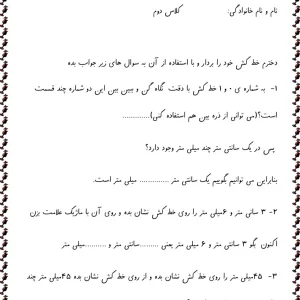 نام و نام خانوادگی: کلاس دوم
دخترم خط کش خود را بردار و با استفاده از آن به سوال های زیر جواب بده
۱- به شماره ی ۰ و ۱ خط کش با دقت نگاه کن و ببین بین این دو شماره چند قسمت
است؟(می توانی از ذره بین هم استفاده کنی)..............
پس در یک سانتی متر چند میلی متر وجود دارد؟
بنابراین می توانیم بگوییم یک سانتی متر ............... میلی متر است.
۲- ۳ سانی متر و ۶میلی متر را روی خط کش نشان بده و روی آن با ماژیک علامت بزن
اکنون بگو ۳ سانتی متر و ۶ میلی متر یعنی .........سانتی متر و ..........میلی متر
۳- ۴۵میلی متر را روی خط کش نشان بده و از روی خط کش نشان بده ۴۵میلی متر چند